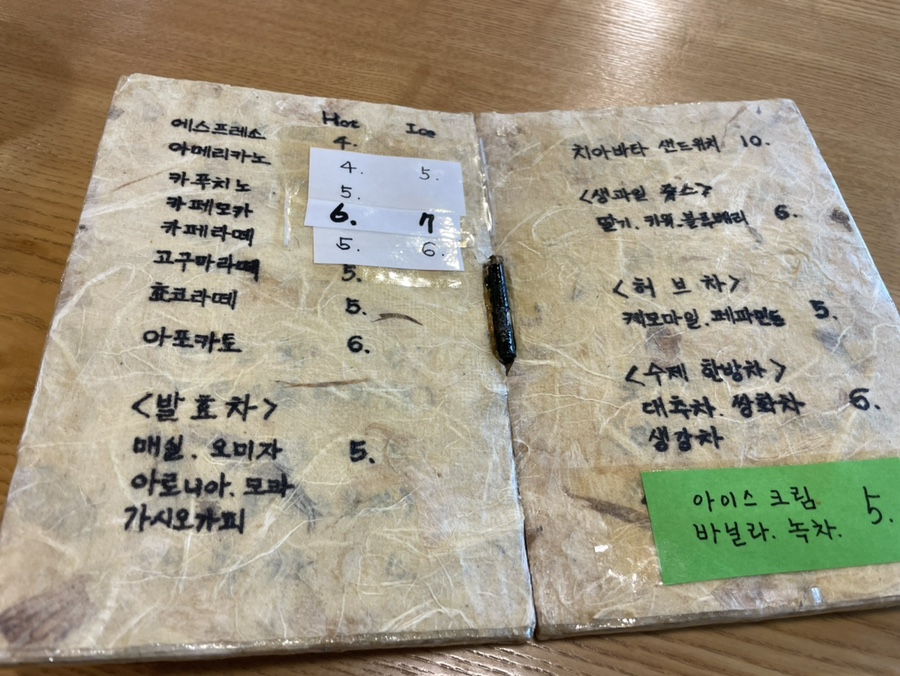 Hot Ice
에스프레소 4.
아메리카노 4. 5.
카푸치노 5.
카페모카 6. 7
카페라떼 5. 6.
고구마라떼 5.
초코라떼 5.
아포카토 6.
<발효차>
매실. 오미자 5.
아로니아. 모과
가시오가피
치아바타 샌드위치 10.
<생과일 쥬스>
딸기. 키위. 블루베리 6.
<허브차>
캐모마일. 페파민트 5.
<수제 한방차>
대추차. 쌍화차 6.
생강차
아이스크림 5.
바닐라. 녹차.